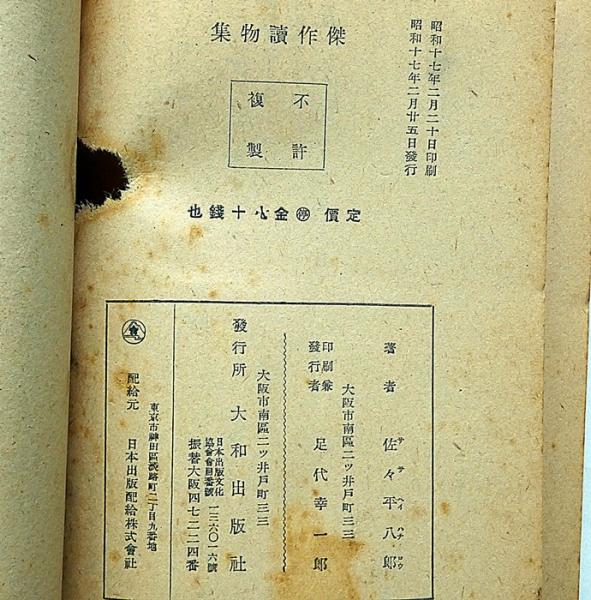 昭和十七年二月二十日印刷
昭和十七年二月廿五日發行
傑作讀物集
不許
複製
定價 停 金八十錢也
著者 佐々平八郎
サ サ ヘイ ハチ ロウ
大阪市南區二ッ井戸町三三
印刷兼
發行者 足代幸一郎
大阪市南區二ッ井戸町三三
發行所 大和出版社
日本出版文化
協會會員番號 一三六〇一六號
振替大阪四七二二四番
東京市神田區淡路町二丁目九番地
配給元 日本出版配給株式會社